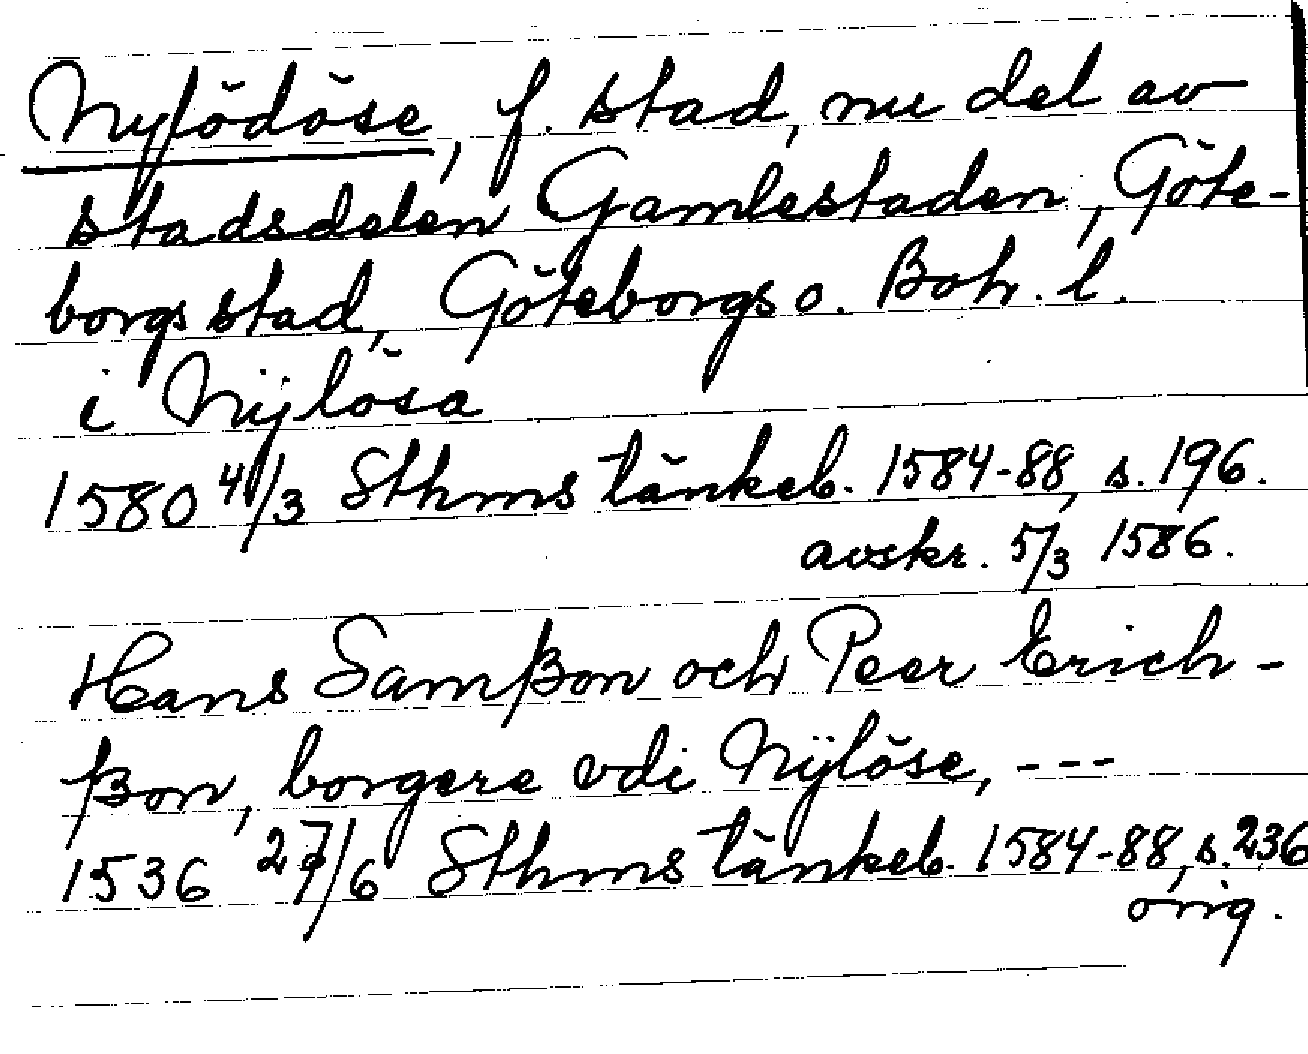 Nylödöse, f. stad, nu del av
stadsdelen Gamlestaden, Göte-
borgs stad, Göteborgs o. Boh. l.
i Nÿlösa
1580 4/3 Sthms tänkeb. 1584-88, s. 196.
avskr. 5/3 1586.
Hans Samßon och Peer Erich-
ßon, borgere vdi Nÿlöse, ---
1536 27/6 Sthms tänkeb. 1584-88, s. 236
orig.